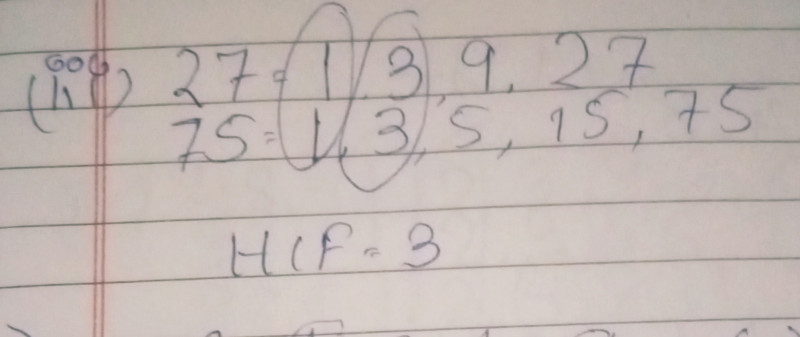 (iii) 27 = 1, 3, 9, 27
75 = 1, 3, 5, 15, 75
HCF = 3